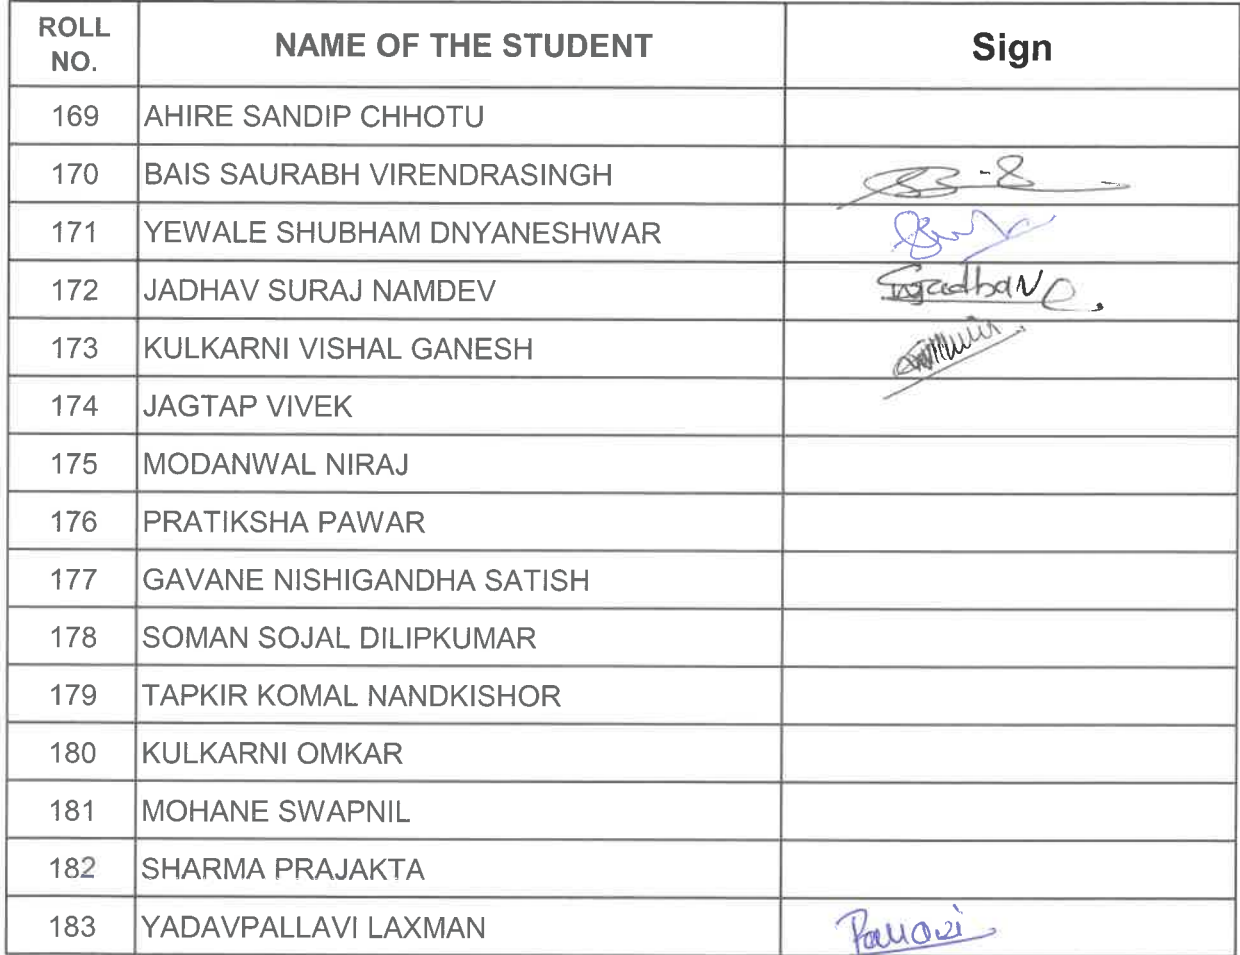 ROLL NO. NAME OF THE STUDENT Sign
169 AHIRE SANDIP CHHOTU
170 BAIS SAURABH VIRENDRASINGH
171 YEWALE SHUBHAM DNYANESHWAR
172 JADHAV SURAJ NAMDEV
173 KULKARNI VISHAL GANESH
174 JAGTAP VIVEK
175 MODANWAL NIRAJ
176 PRATIKSHA PAWAR
177 GAVANE NISHIGANDHA SATISH
178 SOMAN SOJAL DILIPKUMAR
179 TAPKIR KOMAL NANDKISHOR
180 KULKARNI OMKAR
181 MOHANE SWAPNIL
182 SHARMA PRAJAKTA
183 YADAVPALLAVI LAXMAN Pallavi